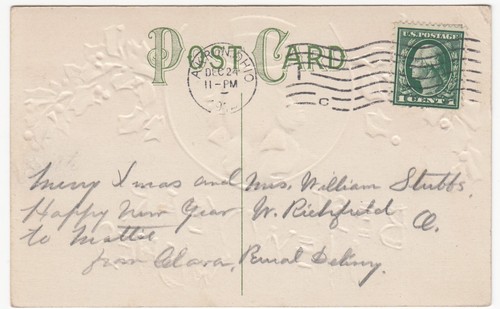 POST CARD
AKRON, OHIO
DEC 24
11-PM
C
U.S. POSTAGE
1 CENT 1
Merry Xmas and
Happy New Year
to Mattie
from Clara.
Mrs. William Stubbs.
W. Richfield O.
Rural Delivery.